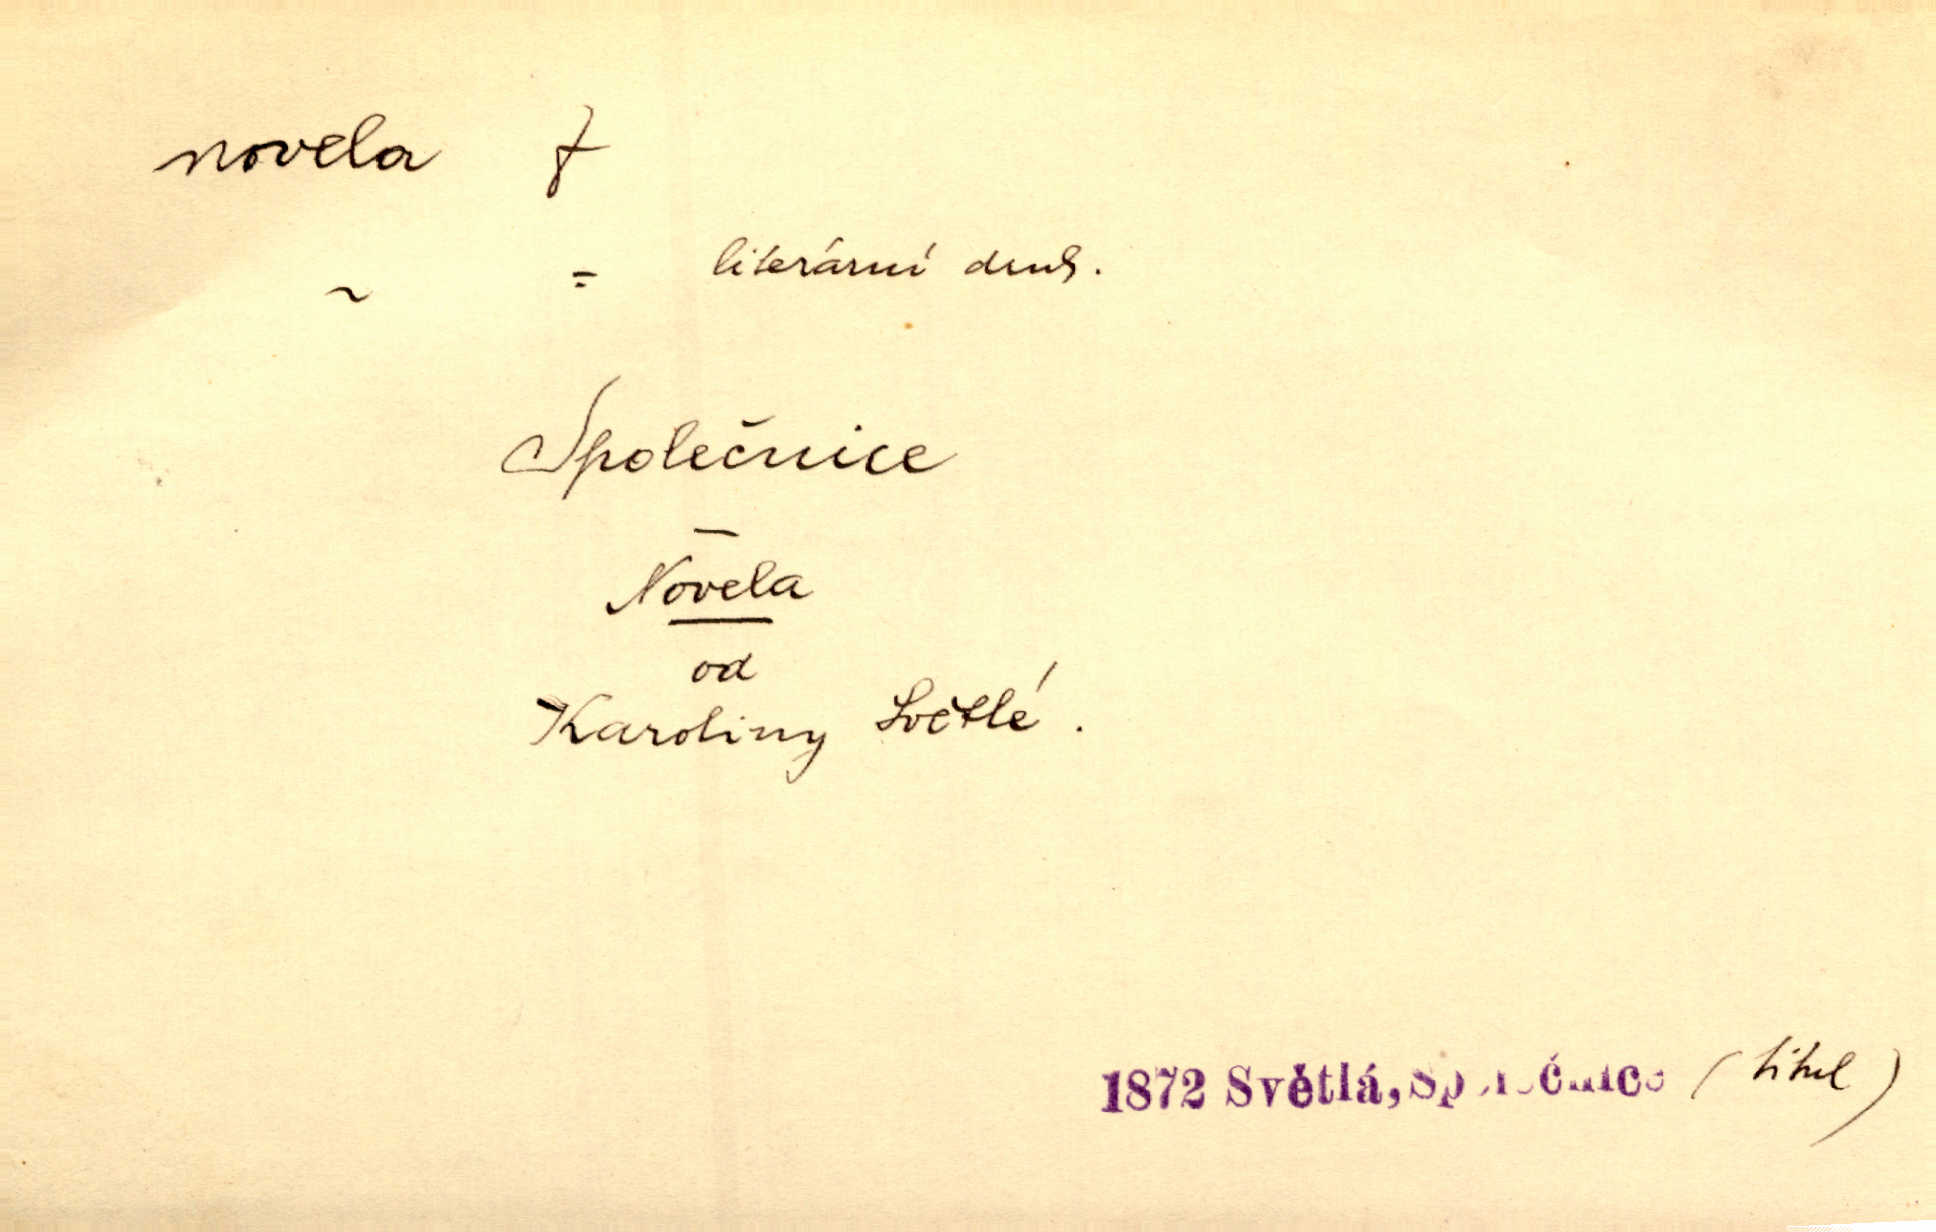 novela f
~ = literární druh.
Společnice
Novela
od
Karoliny Světlé.
1872 Světlá, Společnice (titul)